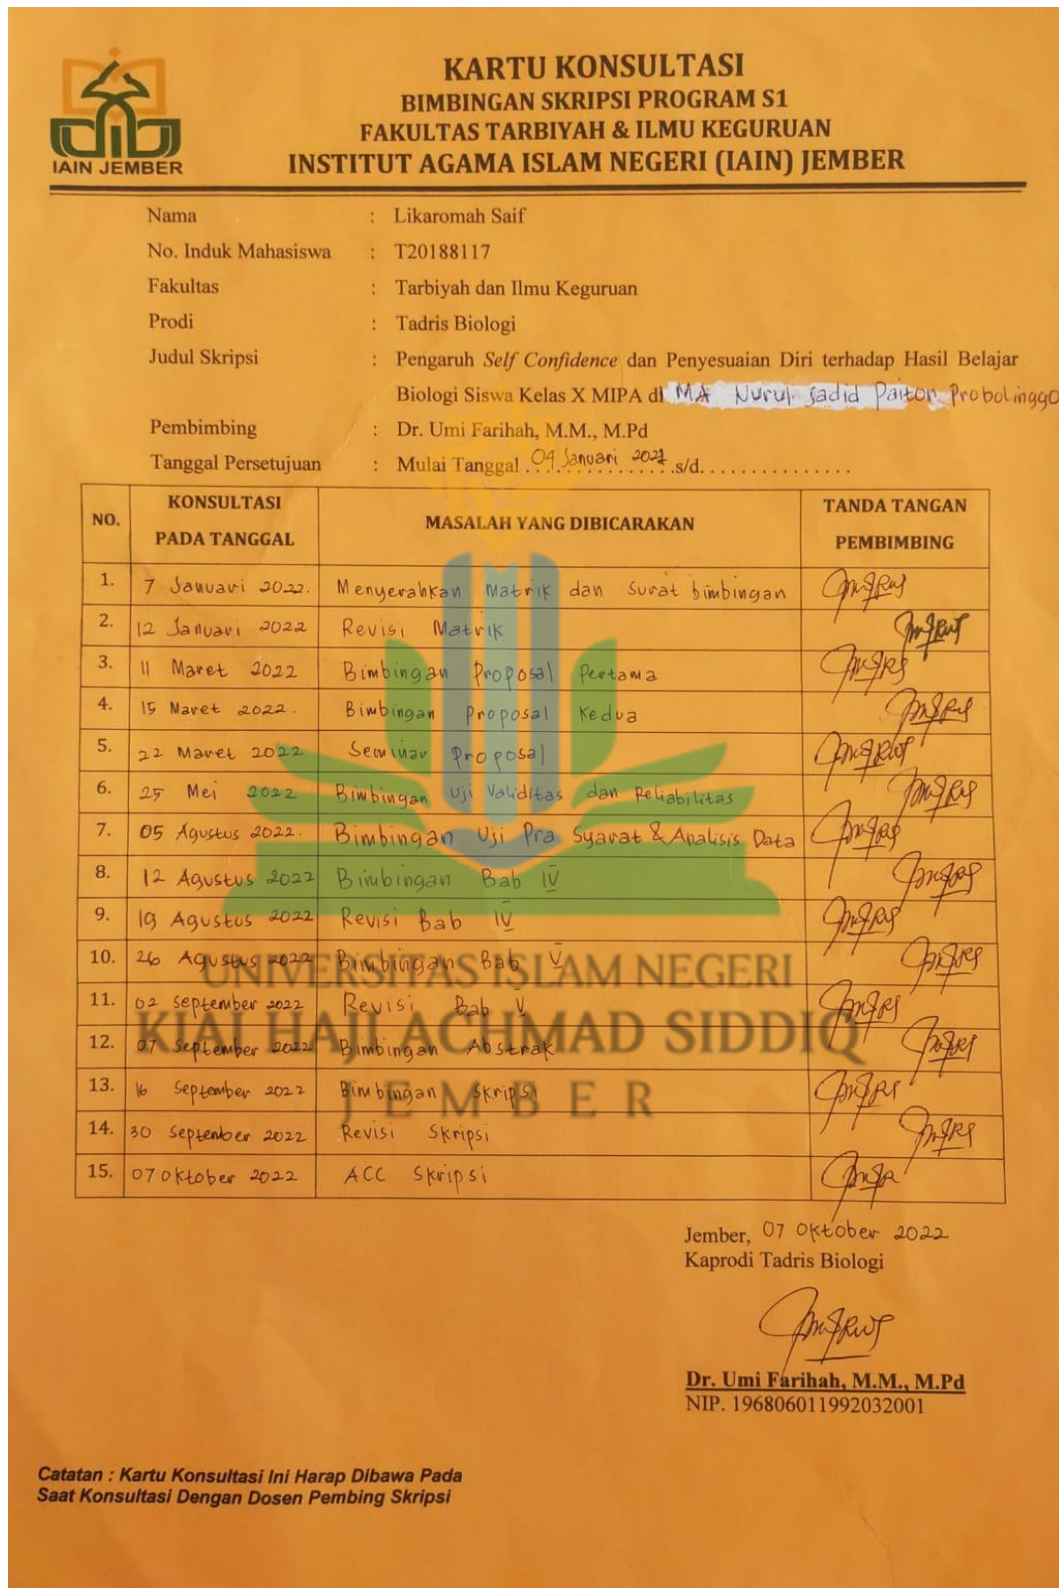 IAIN JEMBER
KARTU KONSULTASI
BIMBINGAN SKRIPSI PROGRAM S1
FAKULTAS TARBIYAH & ILMU KEGURUAN
INSTITUT AGAMA ISLAM NEGERI (IAIN) JEMBER
Nama : Likaromah Saif
No. Induk Mahasiswa : T20188117
Fakultas : Tarbiyah dan Ilmu Keguruan
Prodi : Tadris Biologi
Judul Skripsi : Pengaruh Self Confidence dan Penyesuaian Diri terhadap Hasil Belajar
Biologi Siswa Kelas X MIPA di MA Nurul Jadid Paiton Probolinggo
Pembimbing : Dr. Umi Farihah, M.M., M.Pd
Tanggal Persetujuan : Mulai Tanggal 04 Januari s/d...............
NO. KONSULTASI PADA TANGGAL MASALAH YANG DIBICARAKAN TANDA TANGAN PEMBIMBING
1. 7 Januari 2022. Menyerahkan Matrik dan Surat bimbingan
2. 12 Januari 2022 Revisi Matrik
3. 11 Maret 2022 Bimbingan Proposal Pertama
4. 15 Maret 2022. Bimbingan Proposal Kedua
5. 22 Maret 2022 Seminar Proposal
6. 25 Mei 2022 Bimbingan Uji Validitas dan Reliabilitas
7. 05 Agustus 2022. Bimbingan Uji Pra Syarat & Analisis Data
8. 12 Agustus 2022 Bimbingan Bab IV
9. 19 Agustus 2022 Revisi Bab IV
10. 26 Agustus 2022 Bimbingan Bab V
UNIVERSITAS ISLAM NEGERI
11. 02 September 2022 Revisi Bab V
KIAI HAJI ACHMAD SIDDIQ
12. 07 September 2022 Bimbingan Abstrak
13. 16 September 2022 Bimbingan Skripsi
JEMBER
14. 30 September 2022 Revisi Skripsi
15. 07 Oktober 2022 ACC Skripsi
Jember, 07 Oktober 2022
Kaprodi Tadris Biologi
Dr. Umi Farihah, M.M., M.Pd
NIP. 196806011992032001
Catatan : Kartu Konsultasi Ini Harap Dibawa Pada
Saat Konsultasi Dengan Dosen Pembing Skripsi